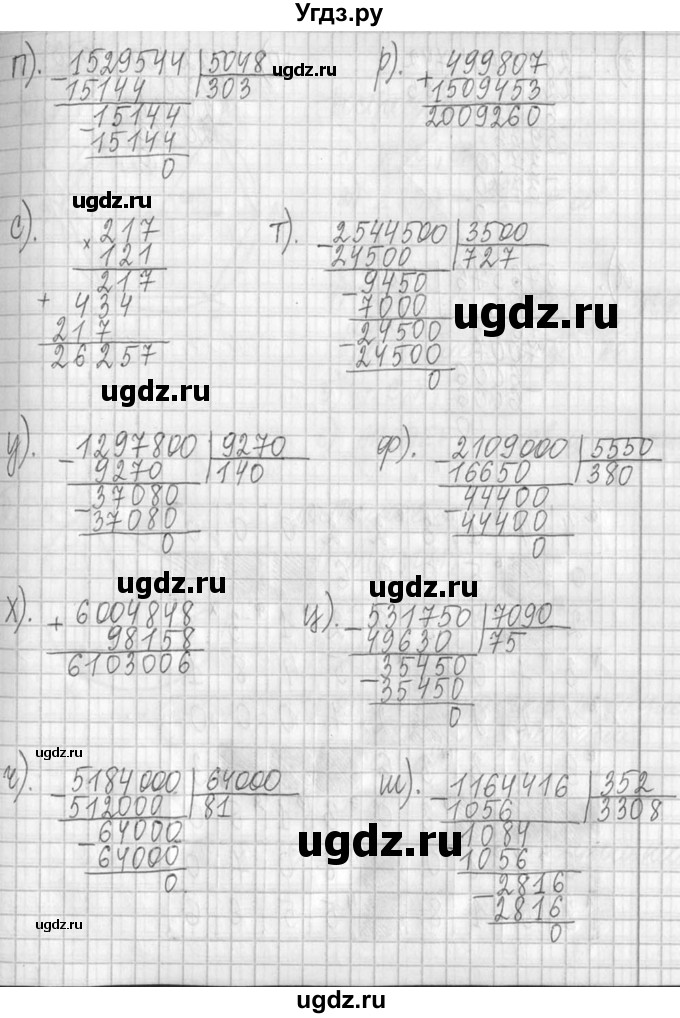 Угдз.ру
п). 1529544 | 5048 р). 499807
- 15144 | 303 + 1509453
- 15144 2009260
15144
0
ugdz.ru
ugdz.ru
с). 217 т). 2544500 | 3500
× 121 - 24500 | 727
217 - 9450
+ 434 7000
217 - 24500
26257 24500
0
ugdz.ru
ugdz.ru
у). 1297800 | 9270 ф). 2109000 | 5550
- 9270 | 140 - 16650 | 380
- 37080 - 44400
37080 44400
0 0
ugdz.ru
ugdz.ru
х). + 6004848 ц). 531750 | 7090
98158 - 49630 | 75
6103006 - 35450
35450
0
ugdz.ru
ч). 5184000 | 64000 ш). 1164416 | 352
- 512000 | 81 - 1056 | 3308
- 64000 - 1084
64000 1056
0 - 2816
2816
0
ugdz.ru
ugdz.ru
ugdz.ru